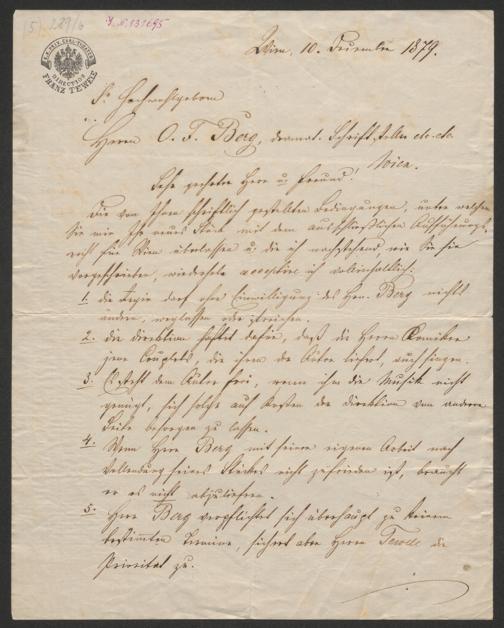 (5) 229/6
I. N. 131695
K. K. PRIV. CARL-THEATER
DIRECTION
FRANZ TEWELE
Wien, 10. Dezember 1879.
Sr Hochwohlgeboren
Herrn O. F. Berg, dramat. Schriftsteller etc. etc.
Wien.
Sehr geehrter Herr u. Freund!
Die von Ihnen schriftlich gestellten Bedingungen, unter welchen
Sie mir Ihr neues Stück mit dem ausschließlichen Aufführungs-
recht für Wien überlassen u. die ich nachstehend wie Sie sie
vorgeschrieben, wiederhole acceptire ich vollinhaltlich:
1. die Regie darf ohne Einwilligung des Hrn. Berg nichts
ändern, weglassen oder streichen.
2. die Direktion haftet dafür, daß die Herrn Komiker
jene Couplets, die ihnen der Autor liefert, auch singen.
3. Es steht dem Autor frei, wenn ihm die Musik nicht
genügt, sich solche auf Kosten der Direktion von anderer
Seite besorgen zu lassen.
4. Wenn Herr Berg mit seiner eigenen Arbeit nach
Vollendung seines Stückes nicht zufrieden ist, braucht
er es nicht abzuliefern.
5. Herr Berg verpflichtet sich überhaupt zu keinem
bestimmten Termine, sichert aber Herrn Tewele die
Priorität zu.